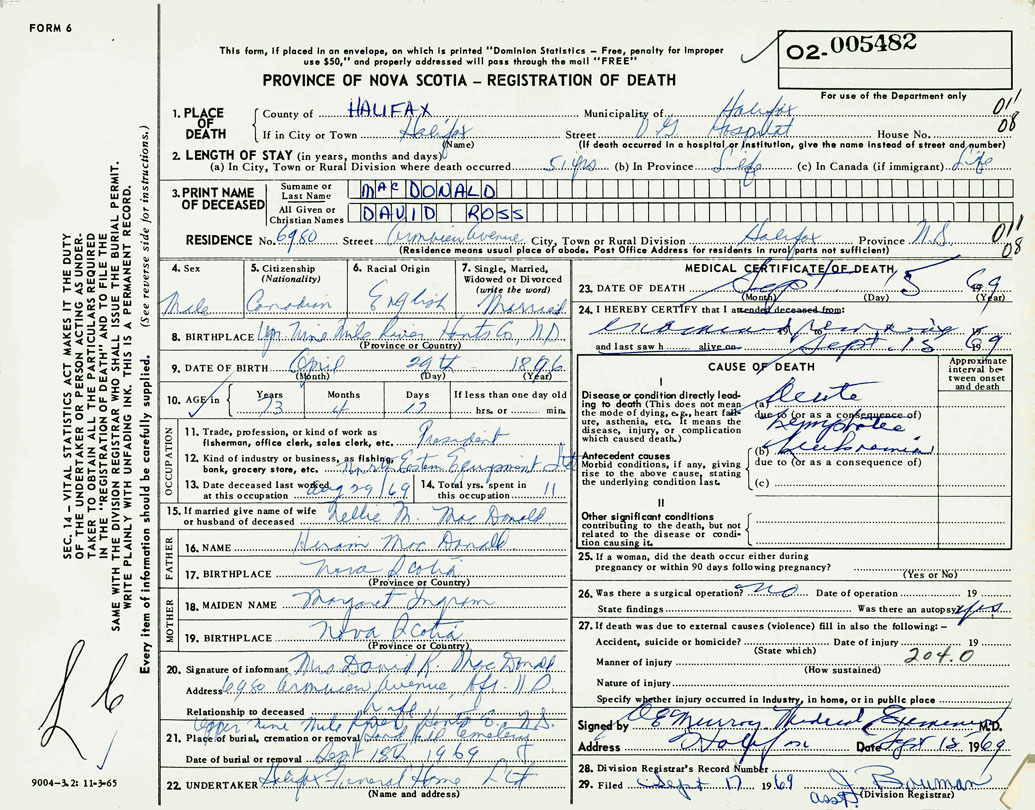 FORM 6
This form, if placed in an envelope, on which is printed "Dominion Statistics – Free, penalty for improper
use $50," and properly addressed will pass through the mail "FREE"
02-005482
PROVINCE OF NOVA SCOTIA – REGISTRATION OF DEATH
For use of the Department only
1. PLACE OF DEATH County of HALIFAX Municipality of Halifax 011
If in City or Town Halifax Street V G Hospital House No. 08
(Name) (If death occurred in a hospital or institution, give the name instead of street and number)
2. LENGTH OF STAY (in years, months and days)
(a) In City, Town or Rural Division where death occurred 51 yrs (b) In Province Life (c) In Canada (if immigrant) Life
3. PRINT NAME OF DECEASED Surname or Last Name MacDONALD
All Given or Christian Names DAVID ROSS
RESIDENCE No. 6980 Street Armview Avenue City, Town or Rural Division Halifax Province N.S. 011
(Residence means usual place of abode. Post Office Address for residents in rural parts not sufficient) 08
4. Sex Male
5. Citizenship (Nationality) Canadian
6. Racial Origin English
7. Single, Married, Widowed or Divorced (write the word) Married
8. BIRTHPLACE Upr. Nine Mile River, Hants Co, N.S.
(Province or Country)
9. DATE OF BIRTH April 29th 1896
(Month) (Day) (Year)
10. AGE in Years Months Days If less than one day old
73 4 17 hrs. or min.
OCCUPATION
11. Trade, profession or kind of work as President
fisherman, office clerk, sales clerk, etc.
12. Kind of industry or business, as fishing,
bank, grocery store, etc. North Eastern Equipment Ltd
13. Date deceased last worked at this occupation Aug 29/69
14. Total yrs. spent in this occupation 11
15. If married give name of wife
or husband of deceased Nellie M. MacDonald
FATHER
16. NAME Hiram MacDonald
17. BIRTHPLACE Nova Scotia
(Province or Country)
MOTHER
18. MAIDEN NAME Margaret Ingram
19. BIRTHPLACE Nova Scotia
(Province or Country)
20. Signature of informant Mrs David R. MacDonald
Address 6980 Armview Avenue, Hfx. N.S.
Relationship to deceased wife
Upper Nine Mile River, Hants Co. N.S.
21. Place of burial, cremation or removal Cemetery
Date of burial or removal Sept 18th 1969
22. UNDERTAKER Halifax Funeral Home Ltd
(Name and address)
MEDICAL CERTIFICATE OF DEATH
23. DATE OF DEATH Sept. 15 1969
(Month) (Day) (Year)
24. I HEREBY CERTIFY that I attended deceased from:
19 to 19
and last saw h alive on Sept. 15 1969
CAUSE OF DEATH
Approximate interval between onset and death
I
Disease or condition directly leading to death (This does not mean the mode of dying, e.g., heart failure, asthenia, etc. It means the disease, injury, or complication which caused death.)
(a) Acute
due to (or as a consequence of)
Lymphatic
Antecedent causes
Morbid conditions, if any, giving rise to the above cause, stating the underlying condition last.
(b) Leukaemia
due to (or as a consequence of)
(c)
II
Other significant conditions
contributing to the death, but not related to the disease or condition causing it.
25. If a woman, did the death occur either during
pregnancy or within 90 days following pregnancy?
(Yes or No)
26. Was there a surgical operation? no Date of operation 19
State findings Was there an autopsy yes
27. If death was due to external causes (violence) fill in also the following: –
Accident, suicide or homicide? Date of injury 19
(State which) 204.0
Manner of injury
(How sustained)
Nature of injury
Specify whether injury occurred in Industry, in home, or in public place
Signed by Murray Medical Examiner M.D.
Address Halifax Date Sept 15 1969
28. Division Registrar's Record Number
29. Filed Sept 17 1969 J Bowman
asst. (Division Registrar)
SEC. 14 – VITAL STATISTICS ACT MAKES IT THE DUTY
OF THE UNDERTAKER OR PERSON ACTING AS UNDER-
TAKER TO OBTAIN ALL THE PARTICULARS REQUIRED
IN THE "REGISTRATION OF DEATH" AND TO FILE THE
SAME WITH THE DIVISION REGISTRAR WHO SHALL ISSUE THE BURIAL PERMIT.
WRITE PLAINLY WITH UNFADING INK. THIS IS A PERMANENT RECORD.
Every item of information should be carefully supplied. (See reverse side for instructions.)
9004-3.2: 11-3-65